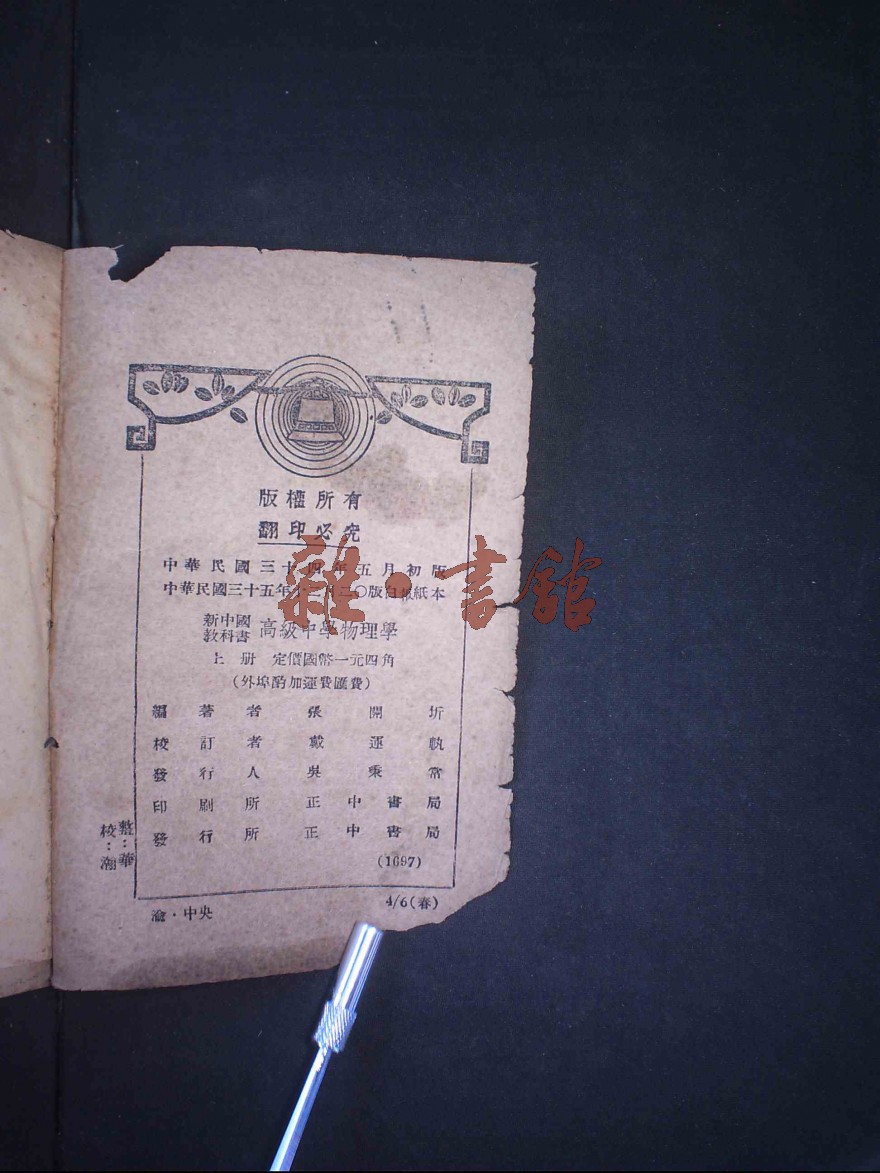 版權所有
翻印必究
中華民國三十四年五月初版
中華民國三十五年 二〇版白報紙本
新中國教科書 高級中學物理學
上冊 定價國幣一元四角
(外埠酌加運費匯費)
編著者 張開圻
校訂者 戴運軌
發行人 吳秉常
印刷所 正中書局
發行所 正中書局
(1697)
整:華
校:瀚
渝·中央
4/6(春)
雜·書館